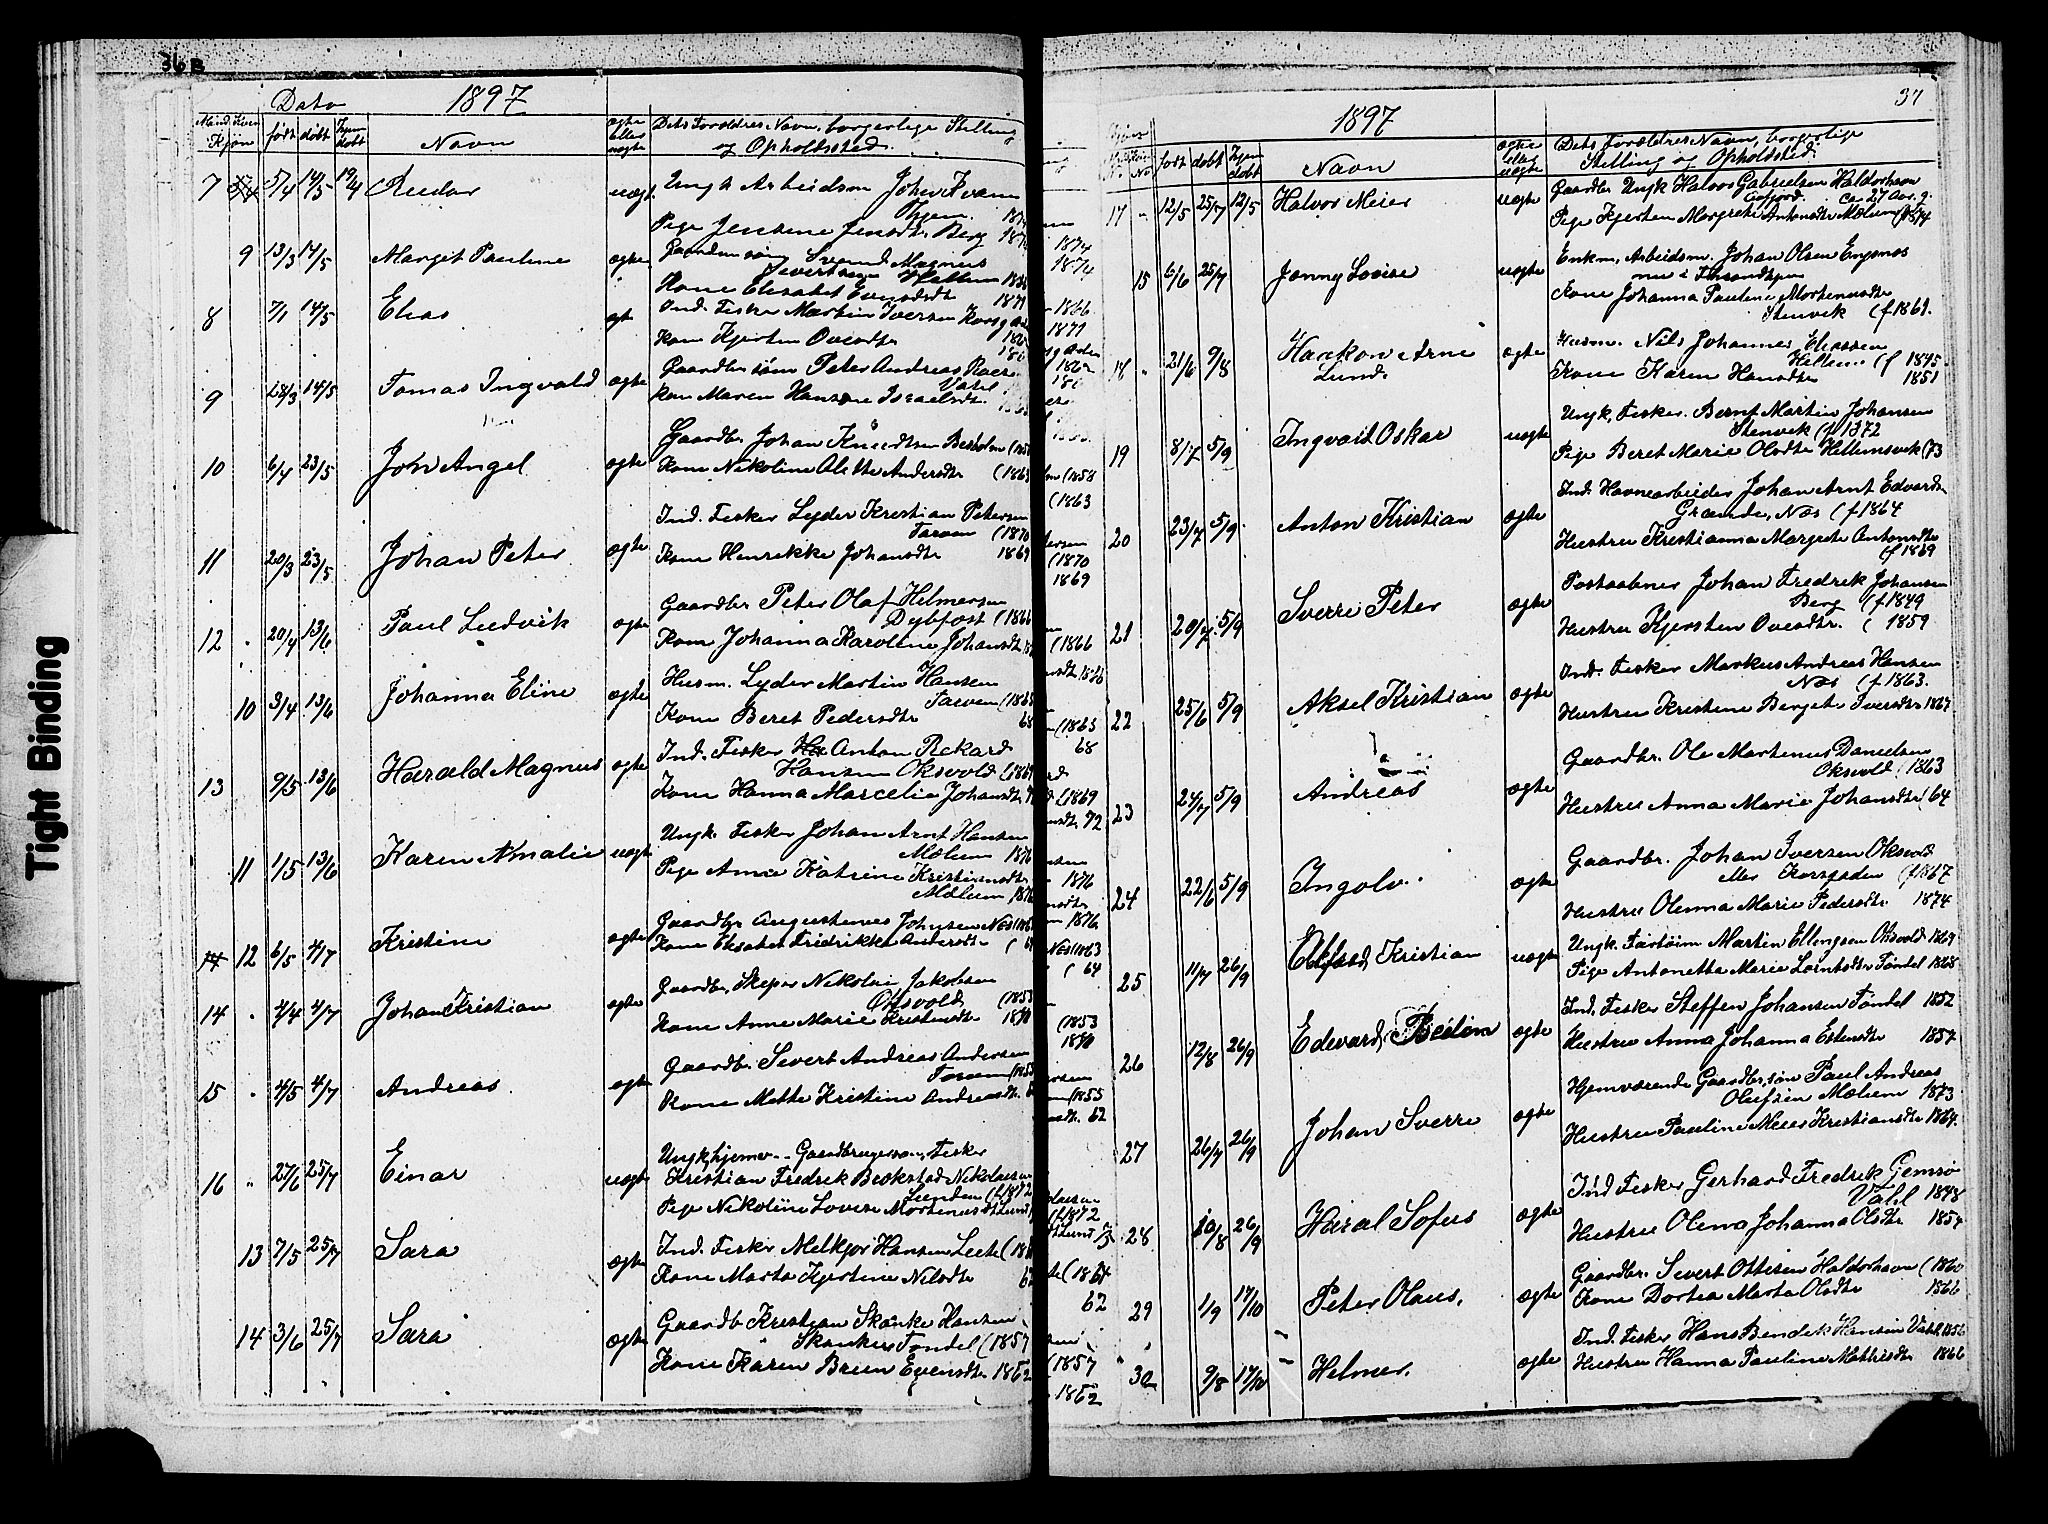 36 B
Dato 1897
Mand. Kvin. Kjøn født døbt Hjem døbt Navn ægte eller uægte Dets Forældres Navn, borgerlige Stilling
og Opholdssted
7 5/4 14/5 19/4 Reidar uægt. Ungk Arbeidsm Johan
Pige Jensine Jensdtr Berg
9 13/3 14/5 Margit Pauline ægte Svend Magnus
Sivertsen
Kone Elisabet Evensdtr 1871
8 7/1 14/5 Elias ægt Ind. Fisker Martin Iversen Korsgaden
Kone Kjersten Ovesdtr
9 28/3 14/5 Tomas Ingvald ægte Gaardbr søn Peter Andreas
Vatil
Kone Maren Hansine Israelsdt.
10 6/4 23/5 John Angel ægte Gaardbr. Johan Knudtsen Besholm (1858
Kone Nikoline Alette Andersdtr (1863
11 20/3 23/5 Johan Peter ægte Ind. Fisker Lyder Kristian Petersen
Tarven (1870
Kone Henrikke Johansdtr 1869
12 20/4 13/6 Paul Ludvik ægte Gaardbr Peter Olaf Helmersen
Dybfost (1866
Kone Johanna Karoline Johansdt.
10 3/4 13/6 Johanna Eline ægte Husm. Lyder Martin Hansen
Tarven (1865
Kone Beret Pedersdtr 68
13 9/5 13/6 Harald Magnus ægte Ind. Fisker Anton Rickard
Hansen Oksvold (1869
Kone Hanna Marcelie Johansdtr. 72
11 1/5 13/6 Karen Amalie uægt Ungk. Fisker Johan Arnt Hansen
Mælum 1876
Pige Anna Katrine Kristiansdtr
Mælum 1876
12 6/5 4/7 Kristine ægte Gaardbr Augustinus Johnsen Næs (1863
Kone Elisabet Fredrikke Andersdtr ( 64
14 4/7 Johan Kristian ægte Gaardbr, Skeper Nikolai Jakobsen
Oksvold (1853
Kone Anne Marie Kristensdtr 1870
15 4/5 4/7 Andreas ægte Gaardbr. Sivert Andreas Andersen
Tarven (1855
Kone Mette Kristine Andreasdt. 62
16 27/6 25/7 Einar uægte Ungk hjemv. Gaardbrugersøn, Fisker
Kristian Fredrik Beckstad Nikolaisen
Lunden (f 1872
Pige Nikoline Lovise Mortensdt Lund
13 7/5 25/7 Sara ægte Ind. Fisker Melkjor Hansen Leite (1861
Kone Marta Kjerstine Nilsdtr 62
14 3/6 25/7 Sara ægte Gaardb Kristian Skanke Hansen
Skanke, Tøndel (1857
Kone Karen Brun Evensdtr 1862
37
1897
født døbt Hjem døbt Navn ægte eller uægte Dets Forældres Navn, borgerlige
Stilling og Opholdssted
17 12/5 25/7 12/5 Halvor Meier uægte Gaardbr Ungk Halvor Gabrielsen Haldorhavn
ca 27 Aar g.
Pige Kjersten Margrete Antonsdtr Mælum (f 1874
15 6/6 25/7 Jenny Lovise uægte Enkm. Arbeidsm. Johan Olsen Engsnes
nu i
Kone Johanna Pauline Mortensdtr
Stenvik (f 1869.
18 21/6 9/8 Haakon Arne Lund ægte Husm. Nils Johannes Eliassen
Hellem (f 1845
Kone Karen Hansdtr 1851
19 8/7 5/9 Ingvald Oskar uægte Ungk. Fisker. Bernt Martin Johansen
Stenvik (f 1872
Pige Beret Marie Olsdtr Hellemsvik (73
20 23/7 5/9 Anton Kristian ægte Ind. Havnearbeider Johan Arnt Edvards.
Grande, Næs (f 1864
Hustru Kristianna Margrete Antonsdtr
(f 1869
21 20/7 5/9 Sverre Peter ægte Postaabner Johan Fredrik Johansen
Berg (f 1849
Hustru Kjersten Ovesdtr. ( 1859
22 25/6 5/9 Aksel Kristian ægte Ind. Fisker Markus Andreas Hansen
Næs (f 1863.
Hustru Kristine Berget Iversdtr 1867
23 24/7 5/9 Andreas ægte Gaardbr. Ole Martinus Danielsen
Oksvold (1863
Hustru Anna Marie Johansdtr (64
24 22/6 5/9 Ingolv. ægte Gaardbr. Johan Iversen Oksvold
Korsgaden (f 1867
Hustru Olenna Marie Pedersdtr 1874
25 11/7 26/9 Elfred Kristian uægte Ungk. Martin Ellingsen Oksvold 1869
Pige Antonetta Marie Lorntsdtr Tøndel 1868
26 12/8 26/9 Edevard Beilem ægte Ind. Fisker Steffen Johansen Tøndel 1852
Hustru Anna Johanna Estensdtr 1857
27 26/7 26/9 Johan Sverre ægte Hjemværende Gaardbr.søn Paul Andreas
Olufsen Mælum 1873.
Hustru Pauline Meier Kristiansdtr 1864.
28 10/8 26/9 Haral Sofus ægte Ind Fisker Gerhard Fredrik Gjemsø
Vahl 1848
Hustru Olena Johanna Olsdtr 1857
29 1/9 17/10 Peter Olaus, ægte Gaardbr. Sivert Ottesen Haldorhavn (1860
Kone Dortea Marta Olsdtr 1866
30 9/8 17/10 Helmer. ægte Ind. Fisker Hans Bendik Hansen Vatil, 1856
Hustru Hanna Pauline Mathisdtr 1866
Tight Binding